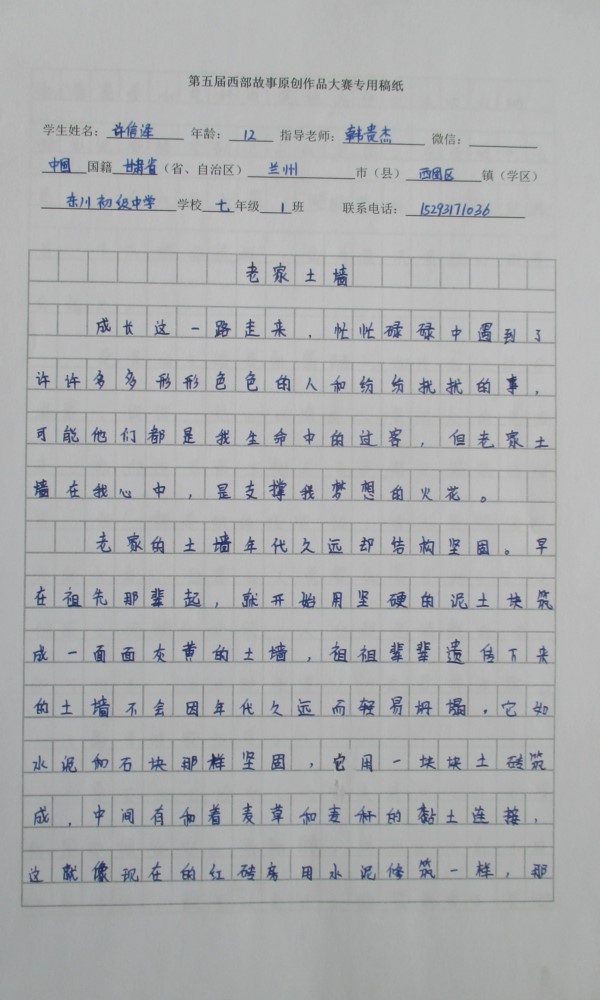 第五届西部故事原创作品大赛专用稿纸
学生姓名：许倩泽 年龄：12 指导老师：韩贵杰 微信：
中国国籍 甘肃省（省、自治区） 兰州 市（县） 西固区 镇（学区）
东川初级中学 学校 七 年级 1 班 联系电话：15293171036
老家土墙
成长这一路走来，忙忙碌碌中遇到了
许许多多形形色色的人和纷纷扰扰的事，
可能他们都是我生命中的过客，但老家土
墙在我心中，是支撑我梦想的火花。
老家的土墙年代久远却结构坚固。早
在祖先那辈起，就开始用坚硬的泥土块筑
成一面面灰黄的土墙，祖祖辈辈遗传下来
的土墙不会因年代久远而轻易坍塌，它如
水泥和石块那样坚固，它用一块块土砖筑
成，中间有和着麦草和麦秆的黏土连接，
这就像现在的红砖房用水泥修筑一样，那